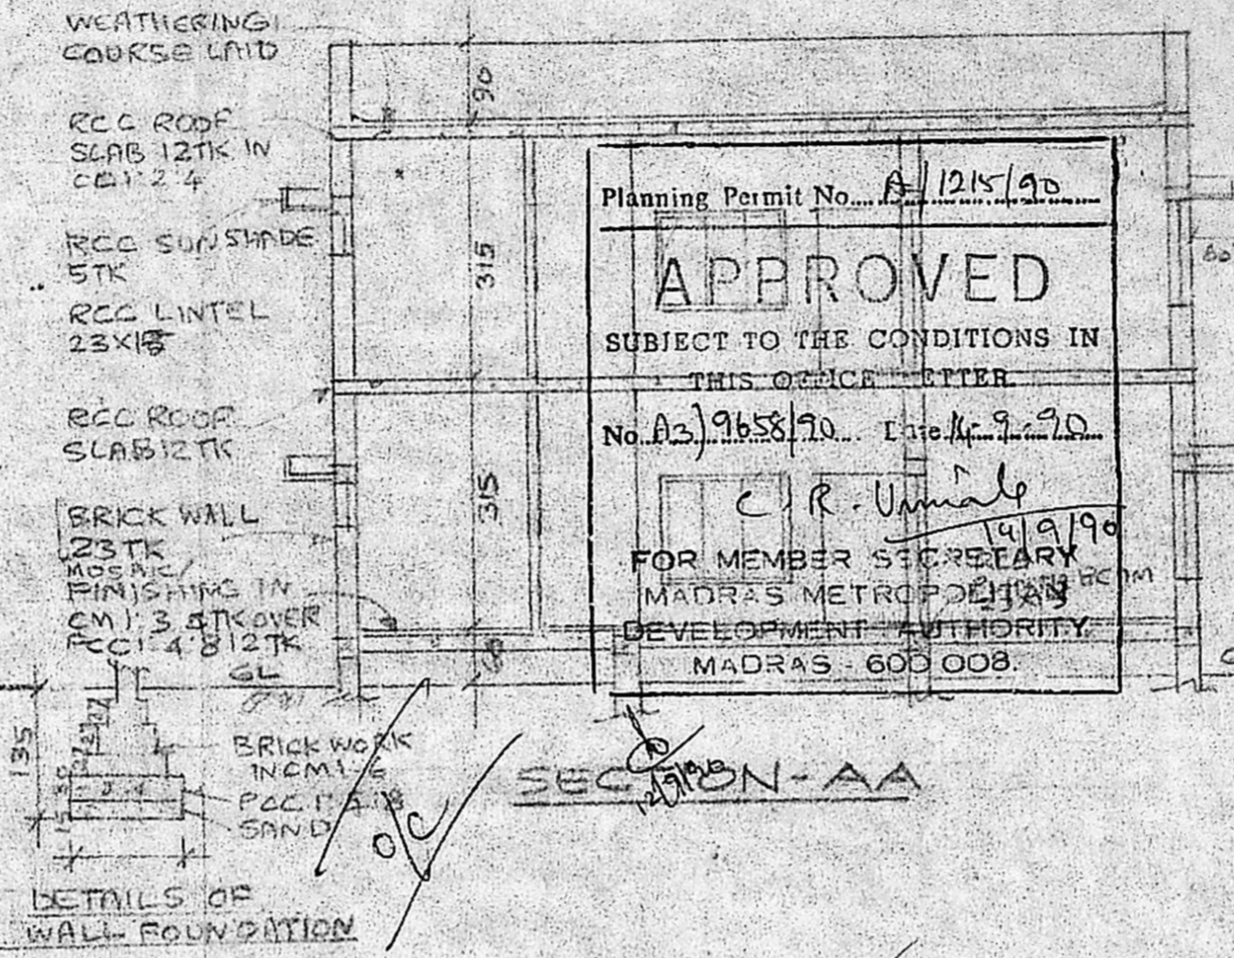 WEATHERING
COURSE LAID
90
RCC ROOF
SLAB 12TK IN
CC 1:2:4
RCC SUNSHADE
5TK
RCC LINTEL
23X15
RCC ROOF
SLAB 12TK
BRICK WALL
23TK
MOSAIC
FINISHING IN
CM 1:3 TK OVER
PCC 1:4:8 12TK
GL
315
315
60
60
Planning Permit No.... A/1215/90
APPROVED
SUBJECT TO THE CONDITIONS IN
THIS OFFICE LETTER
No. A3/9658/90... Date 14-9-90
C. R.
14/9/90
FOR MEMBER SECRETARY
MADRAS METROPOLITAN
DEVELOPMENT AUTHORITY
MADRAS - 600 008.
135
27
27
30
15
BRICK WORK
IN CM 1:6
PCC 1:4:8
SAND
O/C
SECTION-AA
12/9/90
DETAILS OF
WALL FOUNDATION